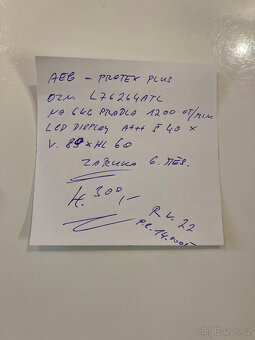 AEG - PROTEX PLUS
OZN. L76264ATL
NA 6KG PRADLA 1200 OT/MIN
LCD DISPLAY A+++ Š 40 X
V. 89 X HL 60
ZARUKA 6. MĚS.
4.300,-
R V. 22
PC. 14.000,-
Bazos.cz